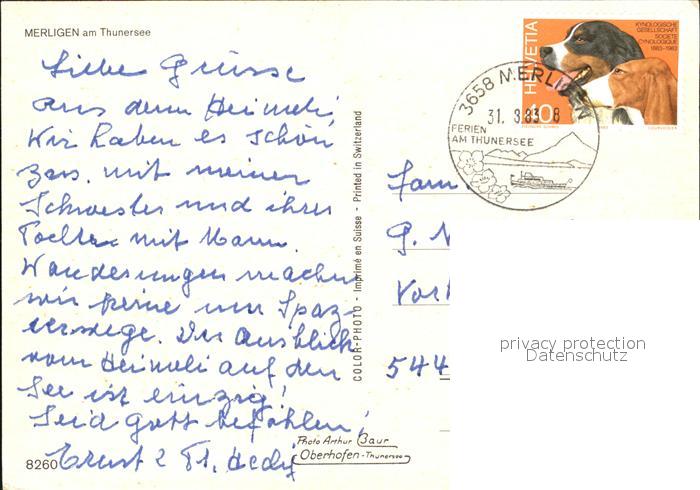 MERLIGEN am Thunersee
Liebe Grüsse
aus dem Heimeli,
Wir haben es schön
zus. mit meiner
Schwester und ihrer
Tochter mit Mann.
Wanderungen machen
wir keine nur Spaz-
ierwege. Der Ausblick
vom Heimeli auf den
See ist einzig!
Seid Gott befohlen!
Ernst & Fr. Hedy
8260
Photo Arthur Baur
Oberhofen-Thunersee
COLOR-PHOTO - Imprimé en Suisse - Printed in Switzerland
HELVETIA
40
KYNOLOGISCHE
GESELLSCHAFT
SOCIETE
CYNOLOGIQUE
1883-1983
3658 MERLIGEN
31. 3.83 8
FERIEN
AM THUNERSEE
Fam.
G.
544
privacy protection
Datenschutz